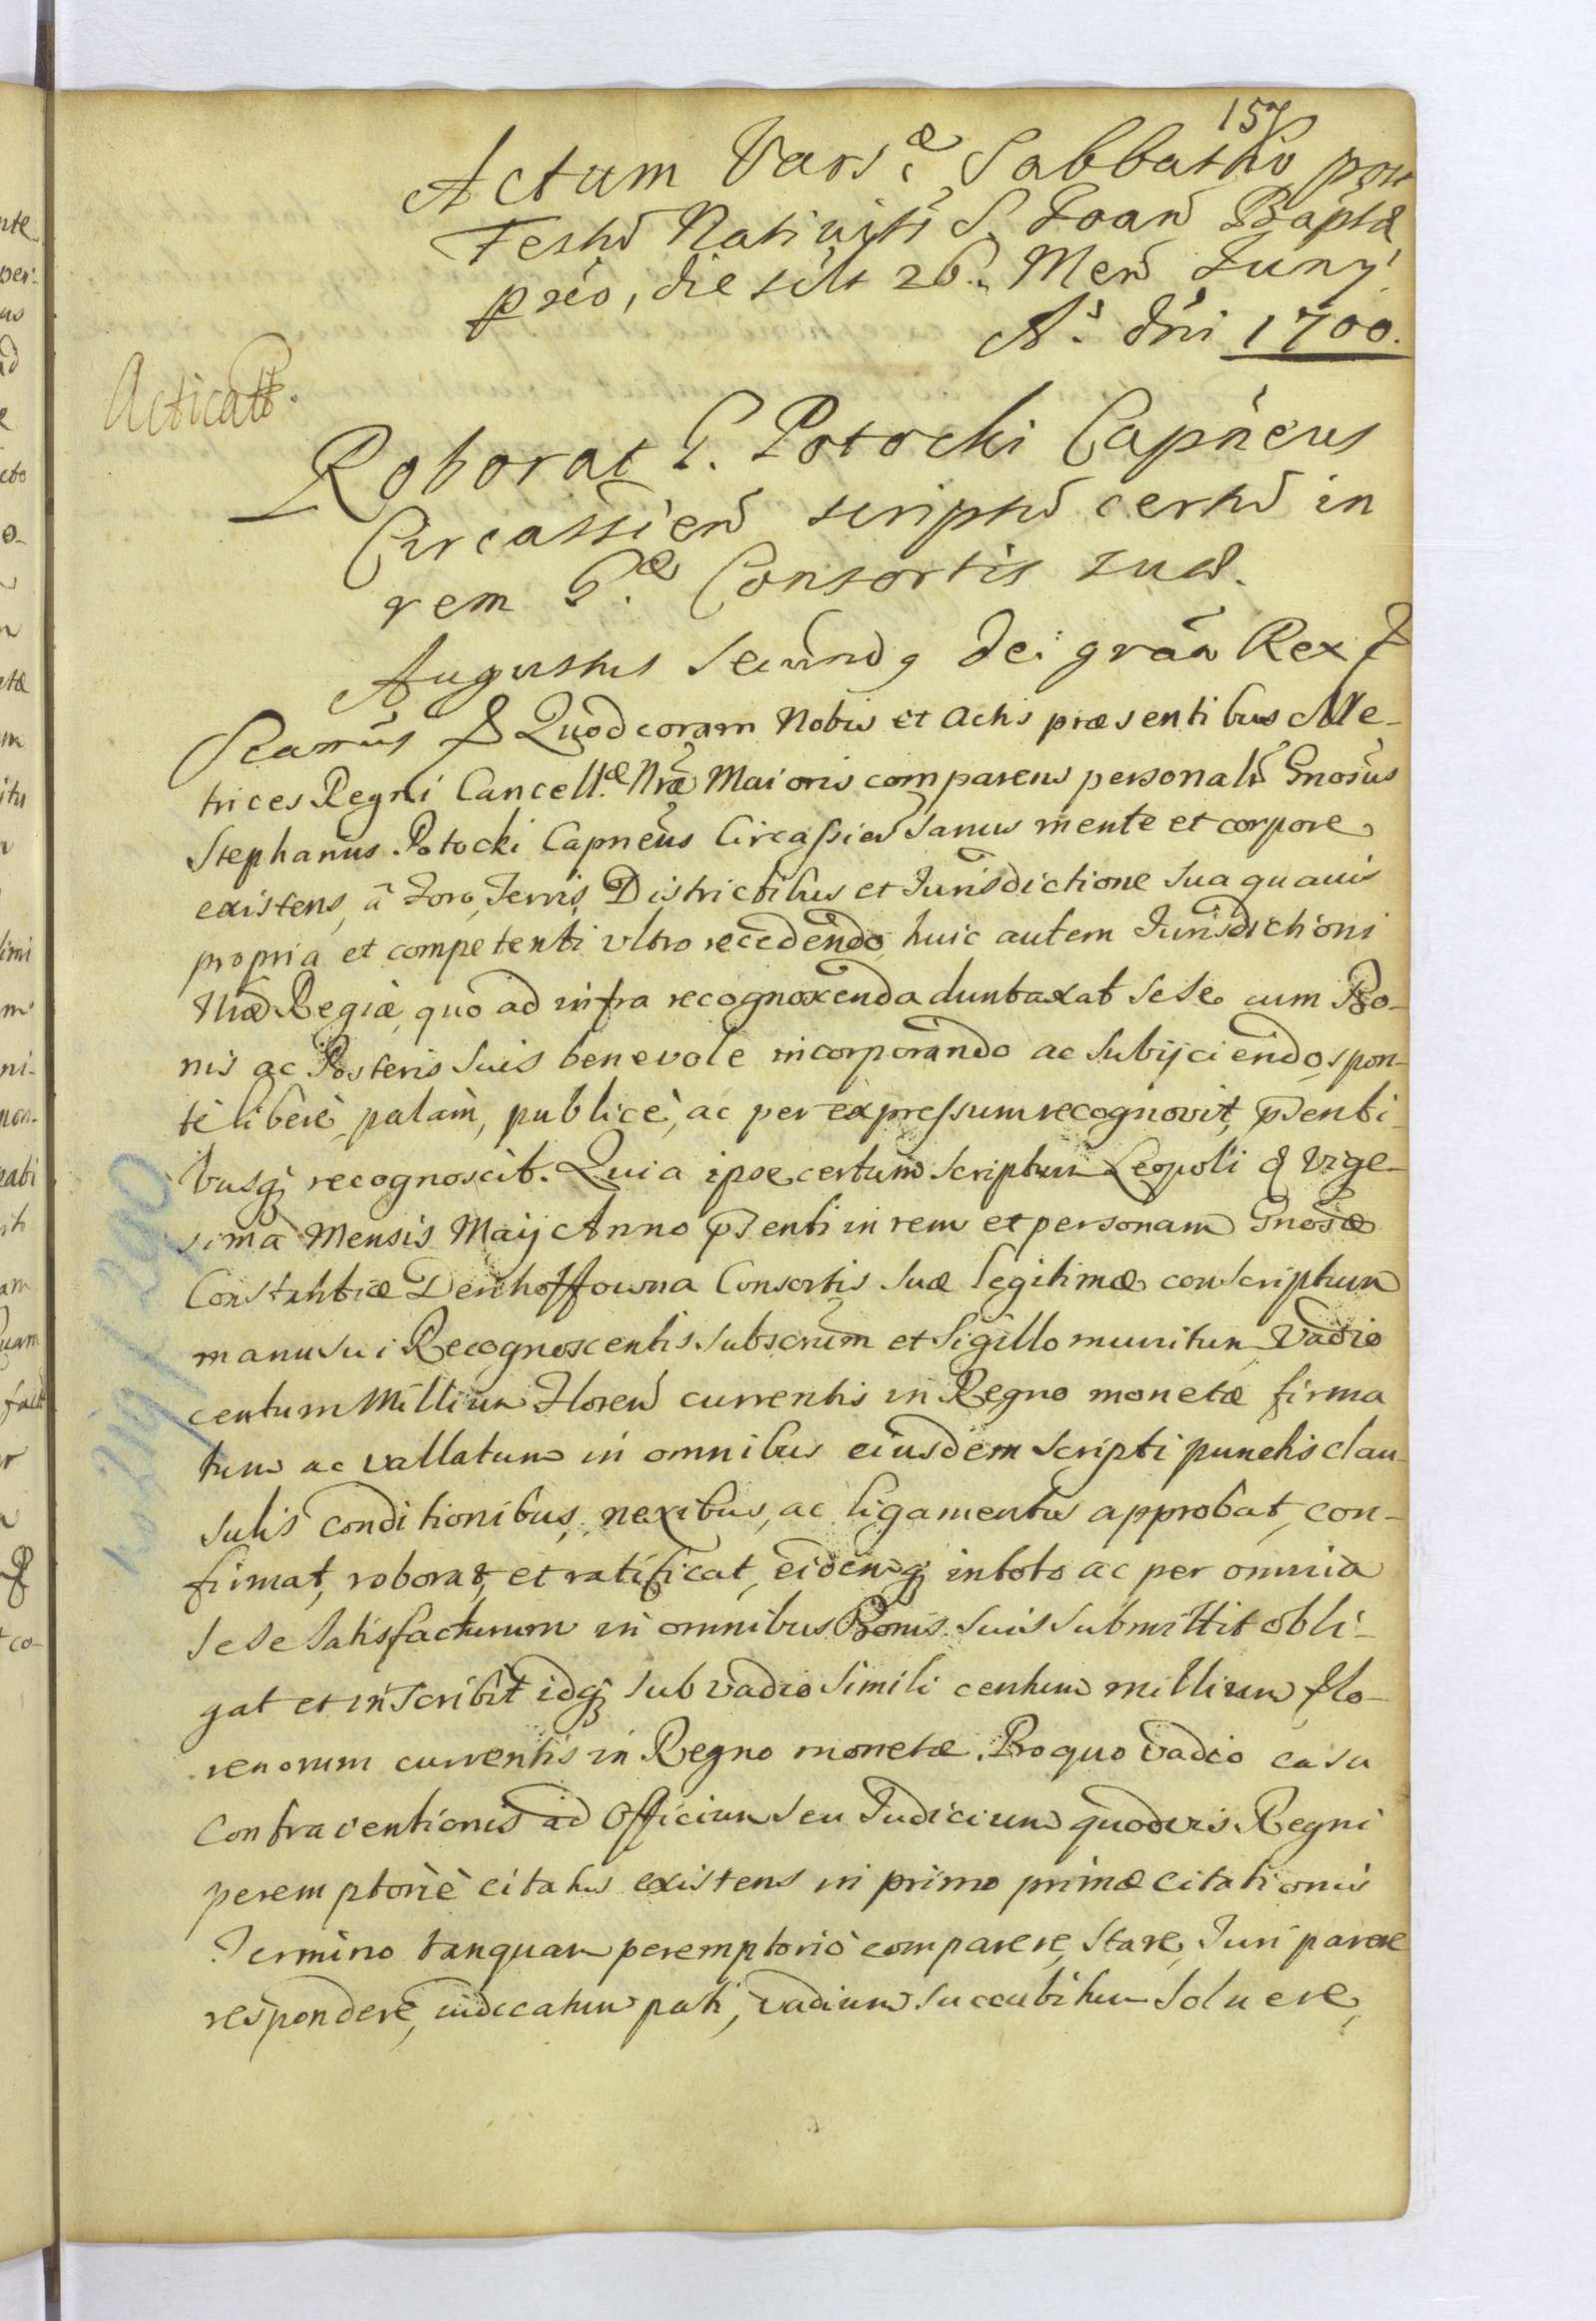 157
Actum Vars:æ Sabbatho post
Festũ Nativitis S. Joañ Baptæ
pxio, die silt 26. Meñ Junij
A: Dni 1700.
Acticatt.
Roborat G. Potocki Capneus
Circassieñ scriptũ certũ in
rem G.æ Consortis suæ.
Augustus Secundq Dei graã Rex P
Seamus & Quod coram Nobis et Actis præsentibus Me-
trices Regni Cancell.æ Nræ Maioris comparens personalr Gnosus
Stephanus Potocki Capneus Circassieñ sanus mente et corpore
existens, â Foro, Terris, Districtibus et Jurisdictione sua quavis
propria et competenti ultro recedendo, huic autem Jurisdictioni
Nræ Regiæ, quo ad infra recognoscenda duntaxat sese cum Bo-
nis ac Posteris suis benevole incorporando ac subijciendo, spon-
tè liberè, palàm, publicè, ac per expressum recognovit, pñsenti-
busq recognoscit. Quia ipse certum scriptum Leopoli d Vige-
sima Mensis Maij Anno pñsenti in rem et personam Gnosæ
Constantiæ Denhoffowna Consortis suæ legitimæ conscriptum
manu sui Recognoscentis subscrũm et sigillo munitum Vadio
centum Millium Floreñ currentis in Regno monetæ firma
tum ac vallatum in omnibus eiusdem scripti punctis clau-
sulis conditionibus, nexibus, ac ligamentis approbat, con-
firmat, roborat, et ratificat, eidemq in toto ac per omnia
sese satisfacturum in omnibus Bonis suis submittit obli-
gat et inscribit idq sub vadio simili centum millium flo-
renorum currentis in Regno monetæ. Pro quo vadio casu
contraventionis ad Officium seu Judicium quodvis Regni
peremptoriè citatus existens in primo primæ citationis
Termino tanquam peremptorio comparere, stare, Juri parere
respondere, iudicatum pati, vadium succubitum solvere,